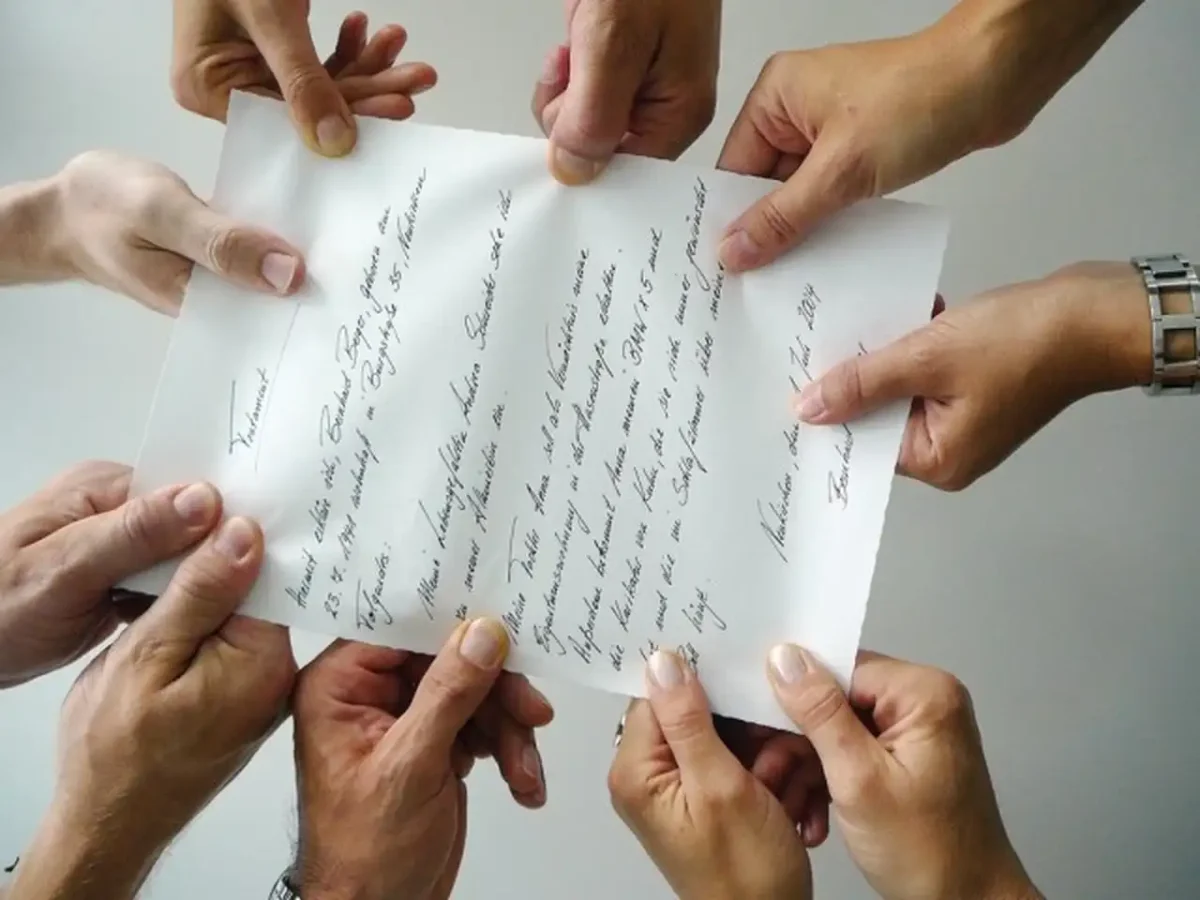 Testament
Hiermit erkläre ich, Bernhard Berger, geboren am
23.7.1941 wohnhaft in Burgstraße 35, Neukirchen
Folgendes:
Meine Lebensgefährtin Andrea Schwarz setze ich
zu meiner Alleinerbin ein.
Meine Tochter Anna soll als Vermächtnis meine
Eigentumswohnung in der Rosenstraße erhalten.
Außerdem bekommt Anna meinen BMW X5 und
die Karikatur von Kuhn, die sie sich immer gewünscht
hat und die im Schlafzimmer über meinem
Bett hängt.
Neukirchen, den Juli 2004
Bernhard